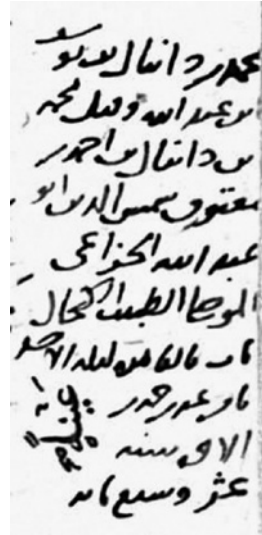 محمد بن دانيال بن يوسف
بن عبد الله وقيل محمد
بن دانيال بن احمد بن
معتوق شمس الدين ابو
عبد الله الخزاعي
الموصلي الطبيب الكحال
مات بالقاهرة ليلة الاحد
ثامن عشر جمدى
الاولى سنة
عشر وسبع مائة